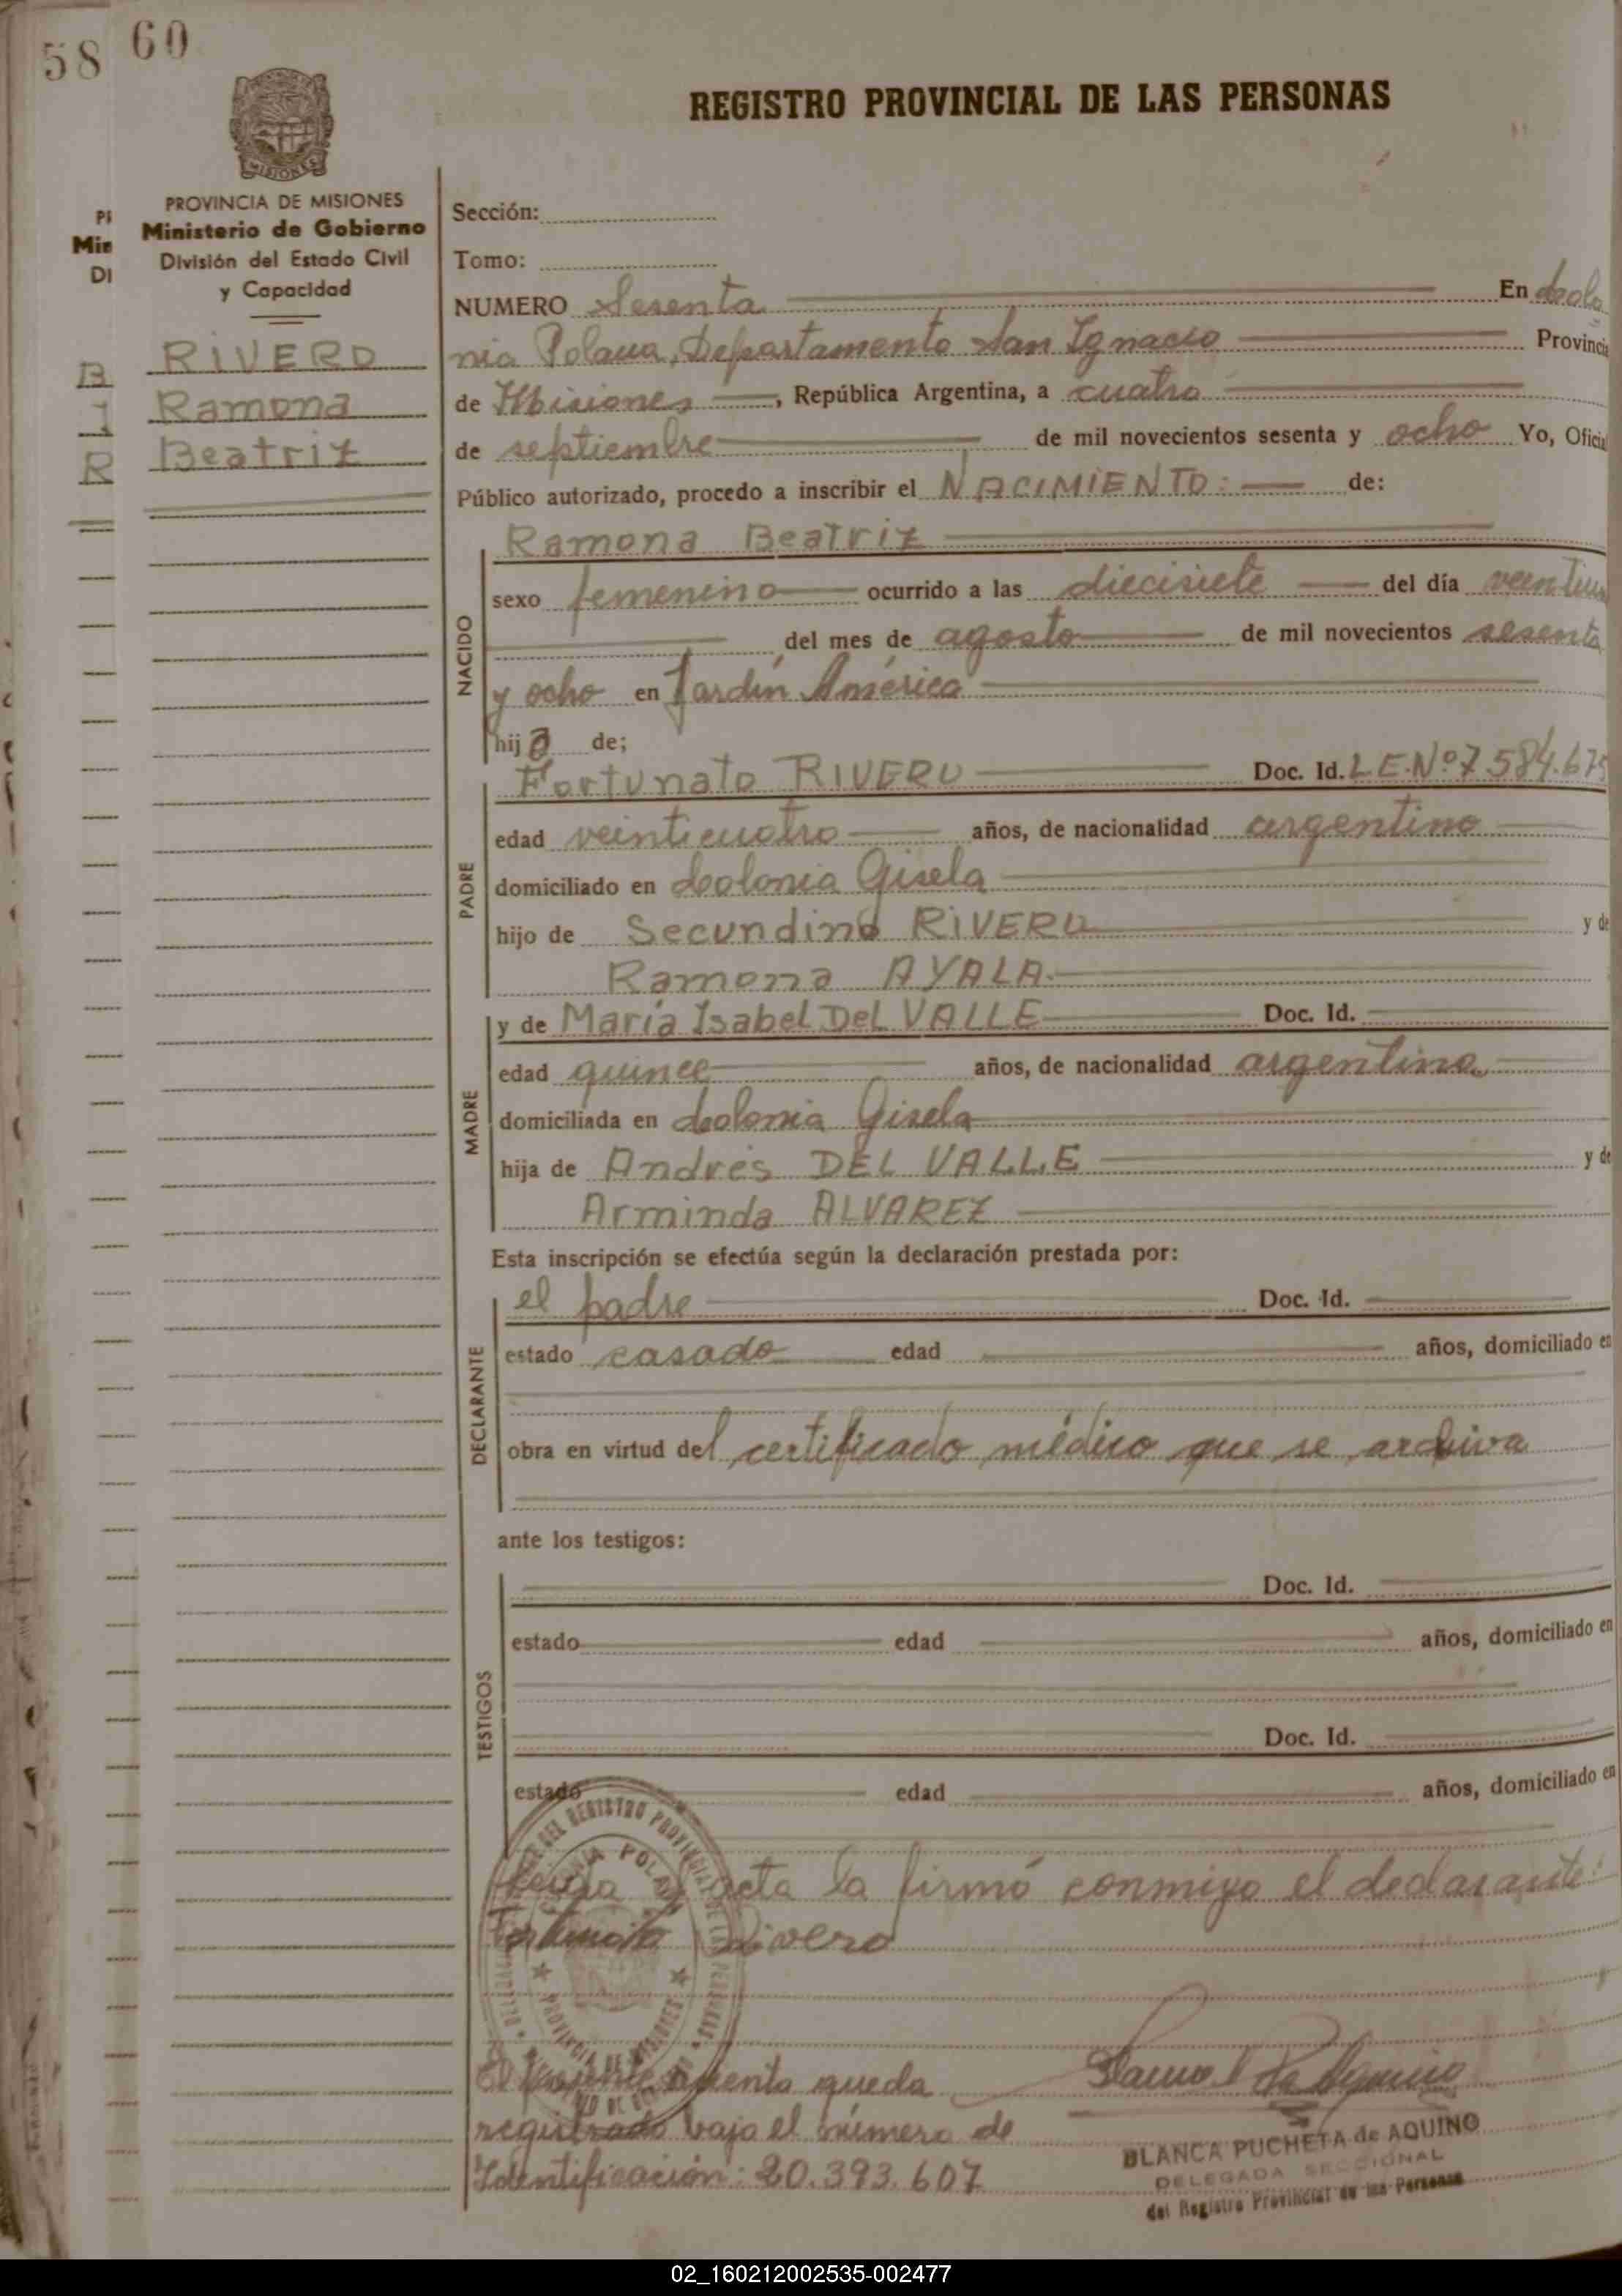 58 60
REGISTRO PROVINCIAL DE LAS PERSONAS
MISIONES
PROVINCIA DE MISIONES
Ministerio de Gobierno
División del Estado Civil
y Capacidad
RIVERO
Ramona
Beatriz
Sección:
Tomo:
NUMERO Sesenta En Colo
nia Polana, Departamento San Ignacio Provincia
de Misiones, República Argentina, a cuatro
de septiembre de mil novecientos sesenta y ocho Yo, Oficial
Público autorizado, procedo a inscribir el NACIMIENTO: de:
NACIDO
Ramona Beatriz
sexo femenino ocurrido a las diecisiete del día veintiun
del mes de agosto de mil novecientos sesenta
y ocho en Jardín América
hija de;
PADRE
Fortunato RIVERO Doc. Id. L.E.Nº 7.584.675
edad veinticuatro años, de nacionalidad argentino
domiciliado en Colonia Gisela
hijo de Secundino RIVERO y de
Ramona AYALA.
MADRE
y de María Isabel Del VALLE Doc. Id.
edad quince años, de nacionalidad argentina
domiciliada en Colonia Gisela
hija de Andrés DEL VALLE y de
Arminda ALVAREZ
Esta inscripción se efectúa según la declaración prestada por:
DECLARANTE
el padre Doc. Id.
estado casado edad años, domiciliado en
obra en virtud del certificado médico que se archiva
ante los testigos:
TESTIGOS
Doc. Id.
estado edad años, domiciliado en
Doc. Id.
estado edad años, domiciliado en
acta la firmó conmigo el declarante:
Fortunato Rivero
El queda
registrado bajo el número de
Identificación: 20.393.607
BLANCA PUCHETA de AQUINO
DELEGADA SECCIONAL
del Registro Provincial de las Personas
02_160212002535-002477